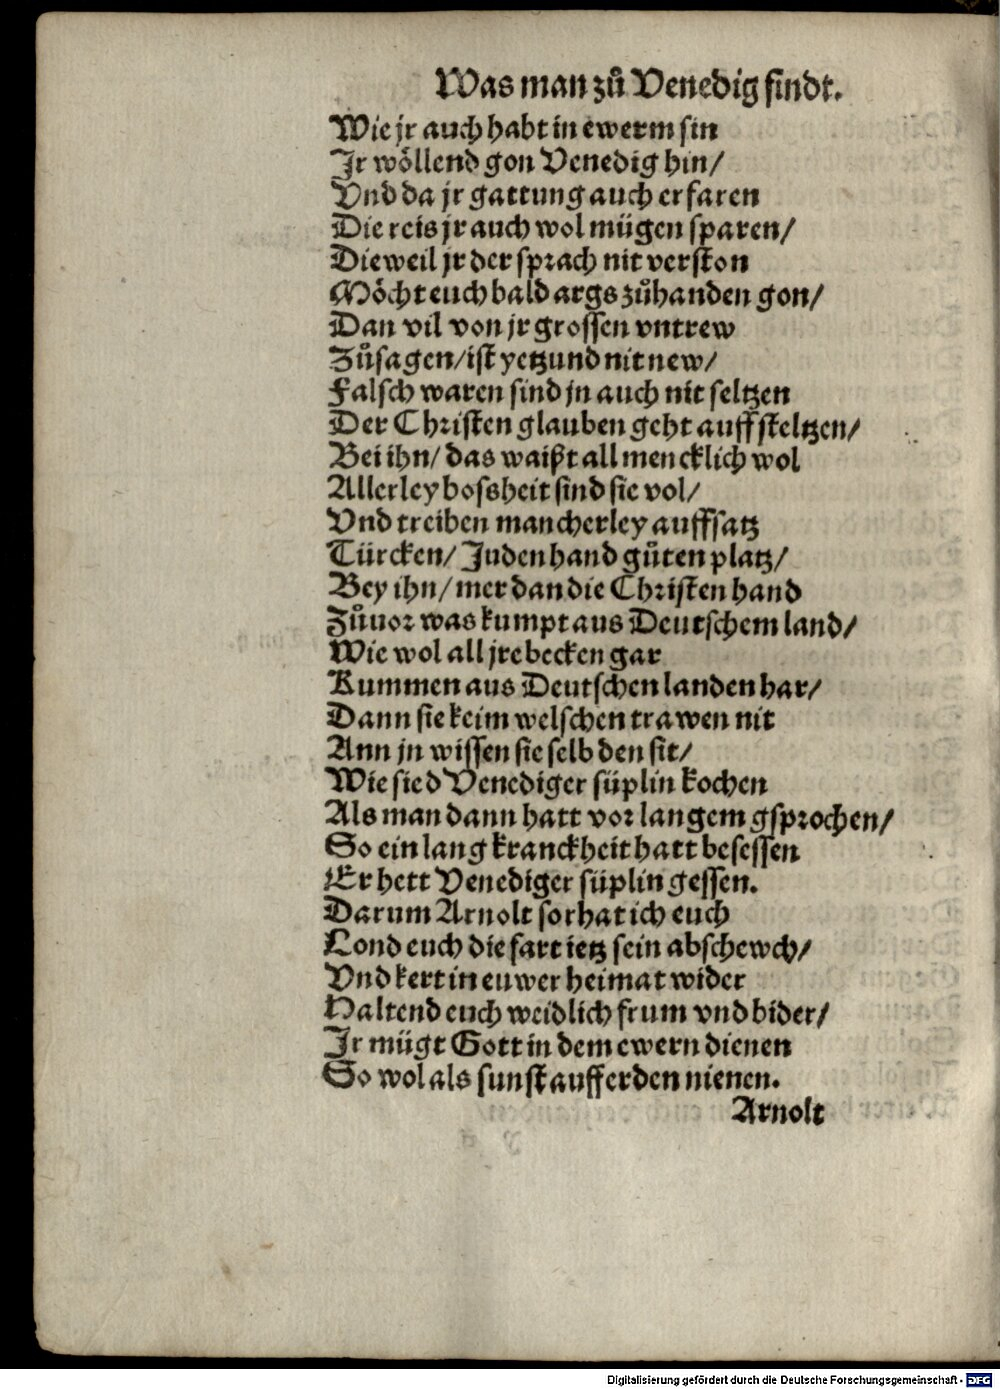 Was man zů Venedig findt.
Wie jr auch habt in ewerm sin
Jr wöllend gon Venedig hin/
Vnd da jr gattung auch erfaren
Die reis jr auch wol mügen sparen/
Dieweil jr der sprach nit verston
Möcht euch bald args zůhanden gon/
Dan vil von jr grossen vntrew
Zůsagen/ist yetzund nit new/
Falsch waren sind jn auch nit seltzen
Der Christen glauben geht auff steltzen/
Bei ihn/ das waißt all mencklich wol
Allerley bossheit sind sie vol/
Vnd treiben mancherley auffsatz
Türcken/ Juden hand gůten platz/
Bey ihn/ mer dan die Christen hand
Zůuor was kumpt aus Deutschem land/
Wie wol all jre becken gar
Kummen aus Deutschen landen har/
Dann sie keim welschen trawen nit
Ann jn wissen sie selb den sit/
Wie sie d Venediger süplin kochen
Als man dann hatt vor langem gsprochen/
So ein lang kranckheit hatt besessen
Er hett Venediger süplin gessen.
Darum Arnolt so rhat ich euch
Lond euch die fart ietz sein abschewch/
Vnd kert in euwer heimat wider
Haltend euch weidlich frum vnd bider/
Jr mügt Gott in dem ewern dienen
So wol als sunst auff erden nienen.
Arnolt
Digitalisierung gefördert durch die Deutsche Forschungsgemeinschaft - DFG